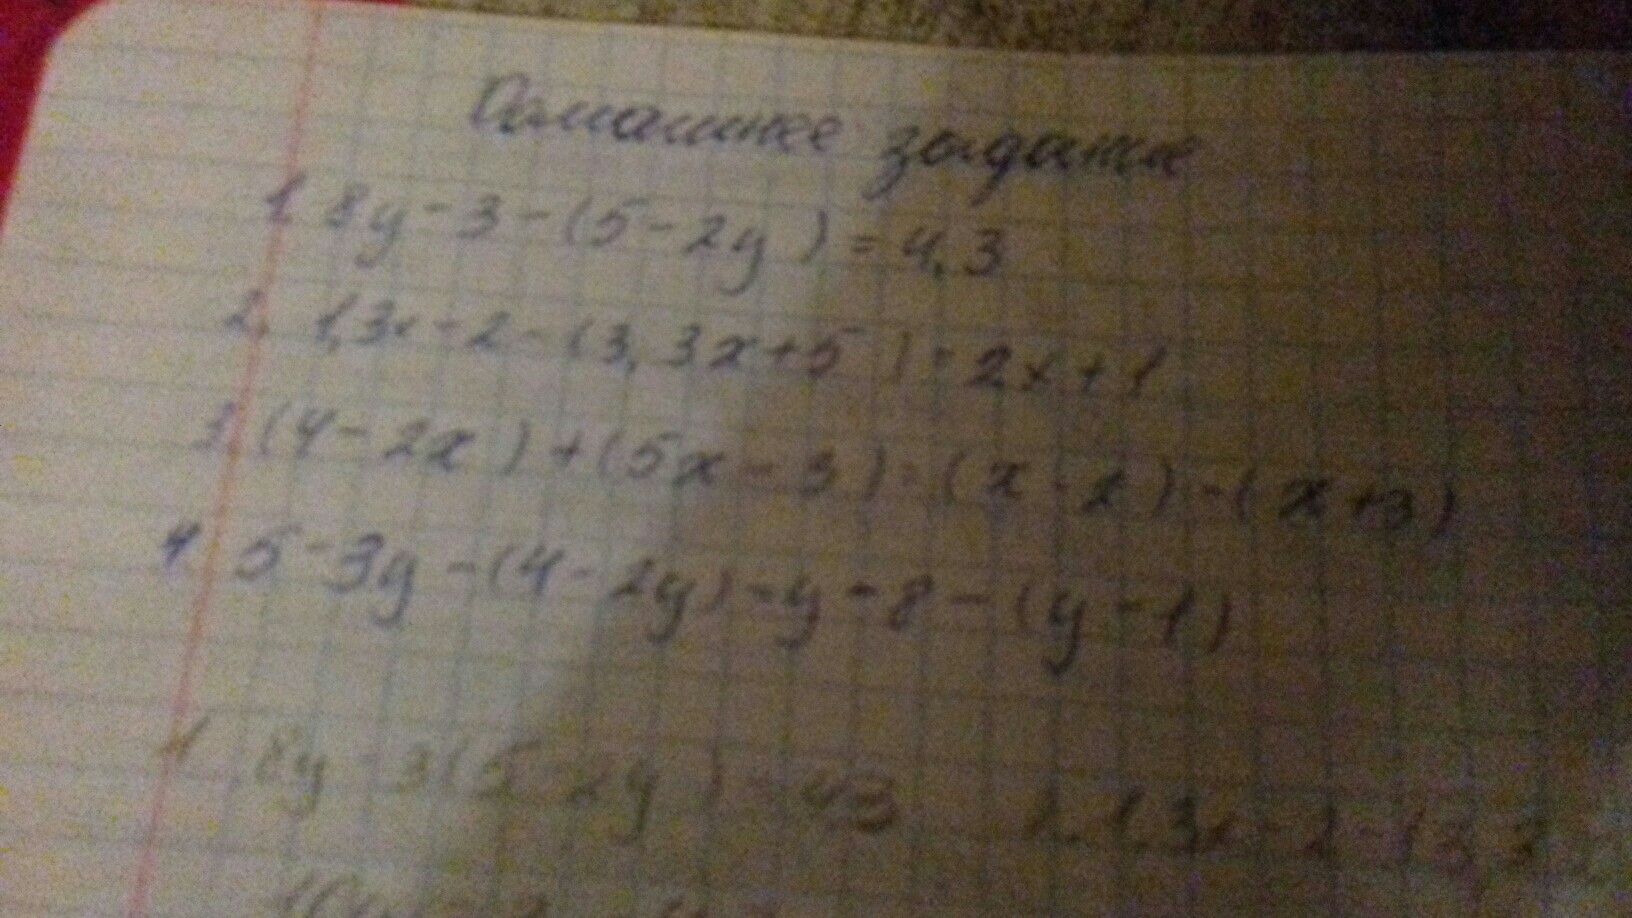 Домашнее задание
1. 8y - 3 - (5 - 2y) = 4,3
2. 1,3x - 2 - (3,3x + 5) = 2x + 1
3. (4 - 2x) + (5x - 3) = (x - 2) - (x + 3)
4. 5 - 3y - (4 - 2y) = y - 8 - (y - 1)
1 8y - 3(5 - 2y) = 4,3 2. 1,3x - 2 - (3,3